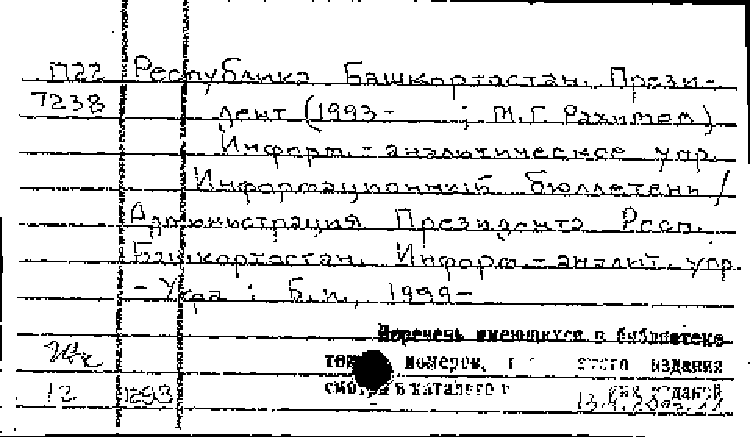 П22 Республика Башкортостан. Прези-
7238 дент (1993- ; М.Г. Рахимов)
Информ.-аналитическое упр.
Информационный бюллетень /
Администрация Президента Респ.
Башкортостан. Информ.-аналит. упр.
- Уфа : Б.и., 1999-
Перечень имеющихся в библиотеке
номеров, этого издания
в каталоге
12 1293